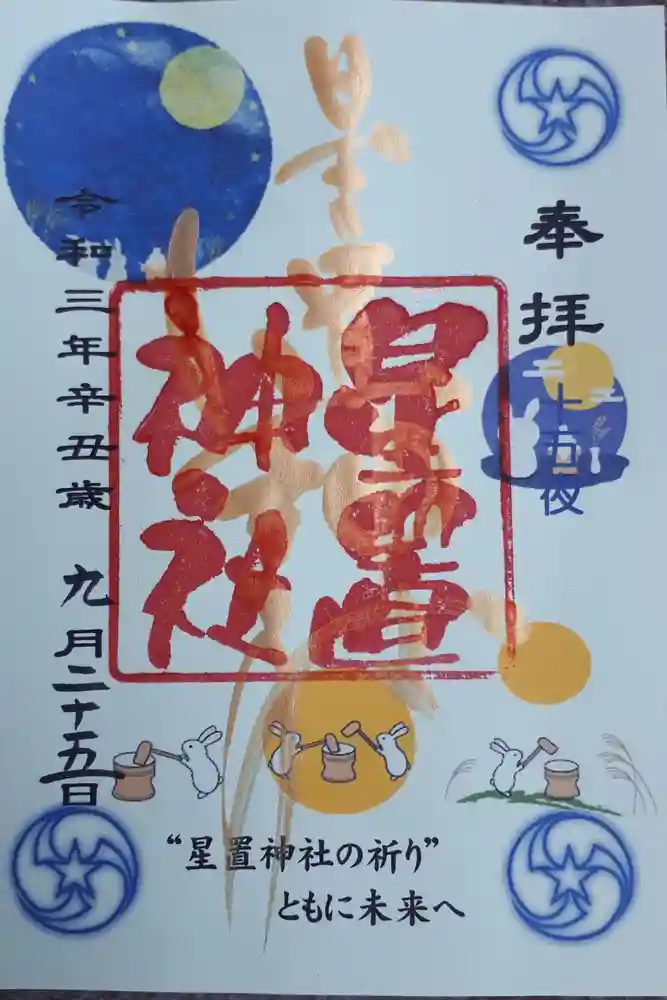 奉拝
十五夜
星置神社
星置神社
令和三年辛丑歳 九月二十五日
“星置神社の祈り”
ともに未来へ